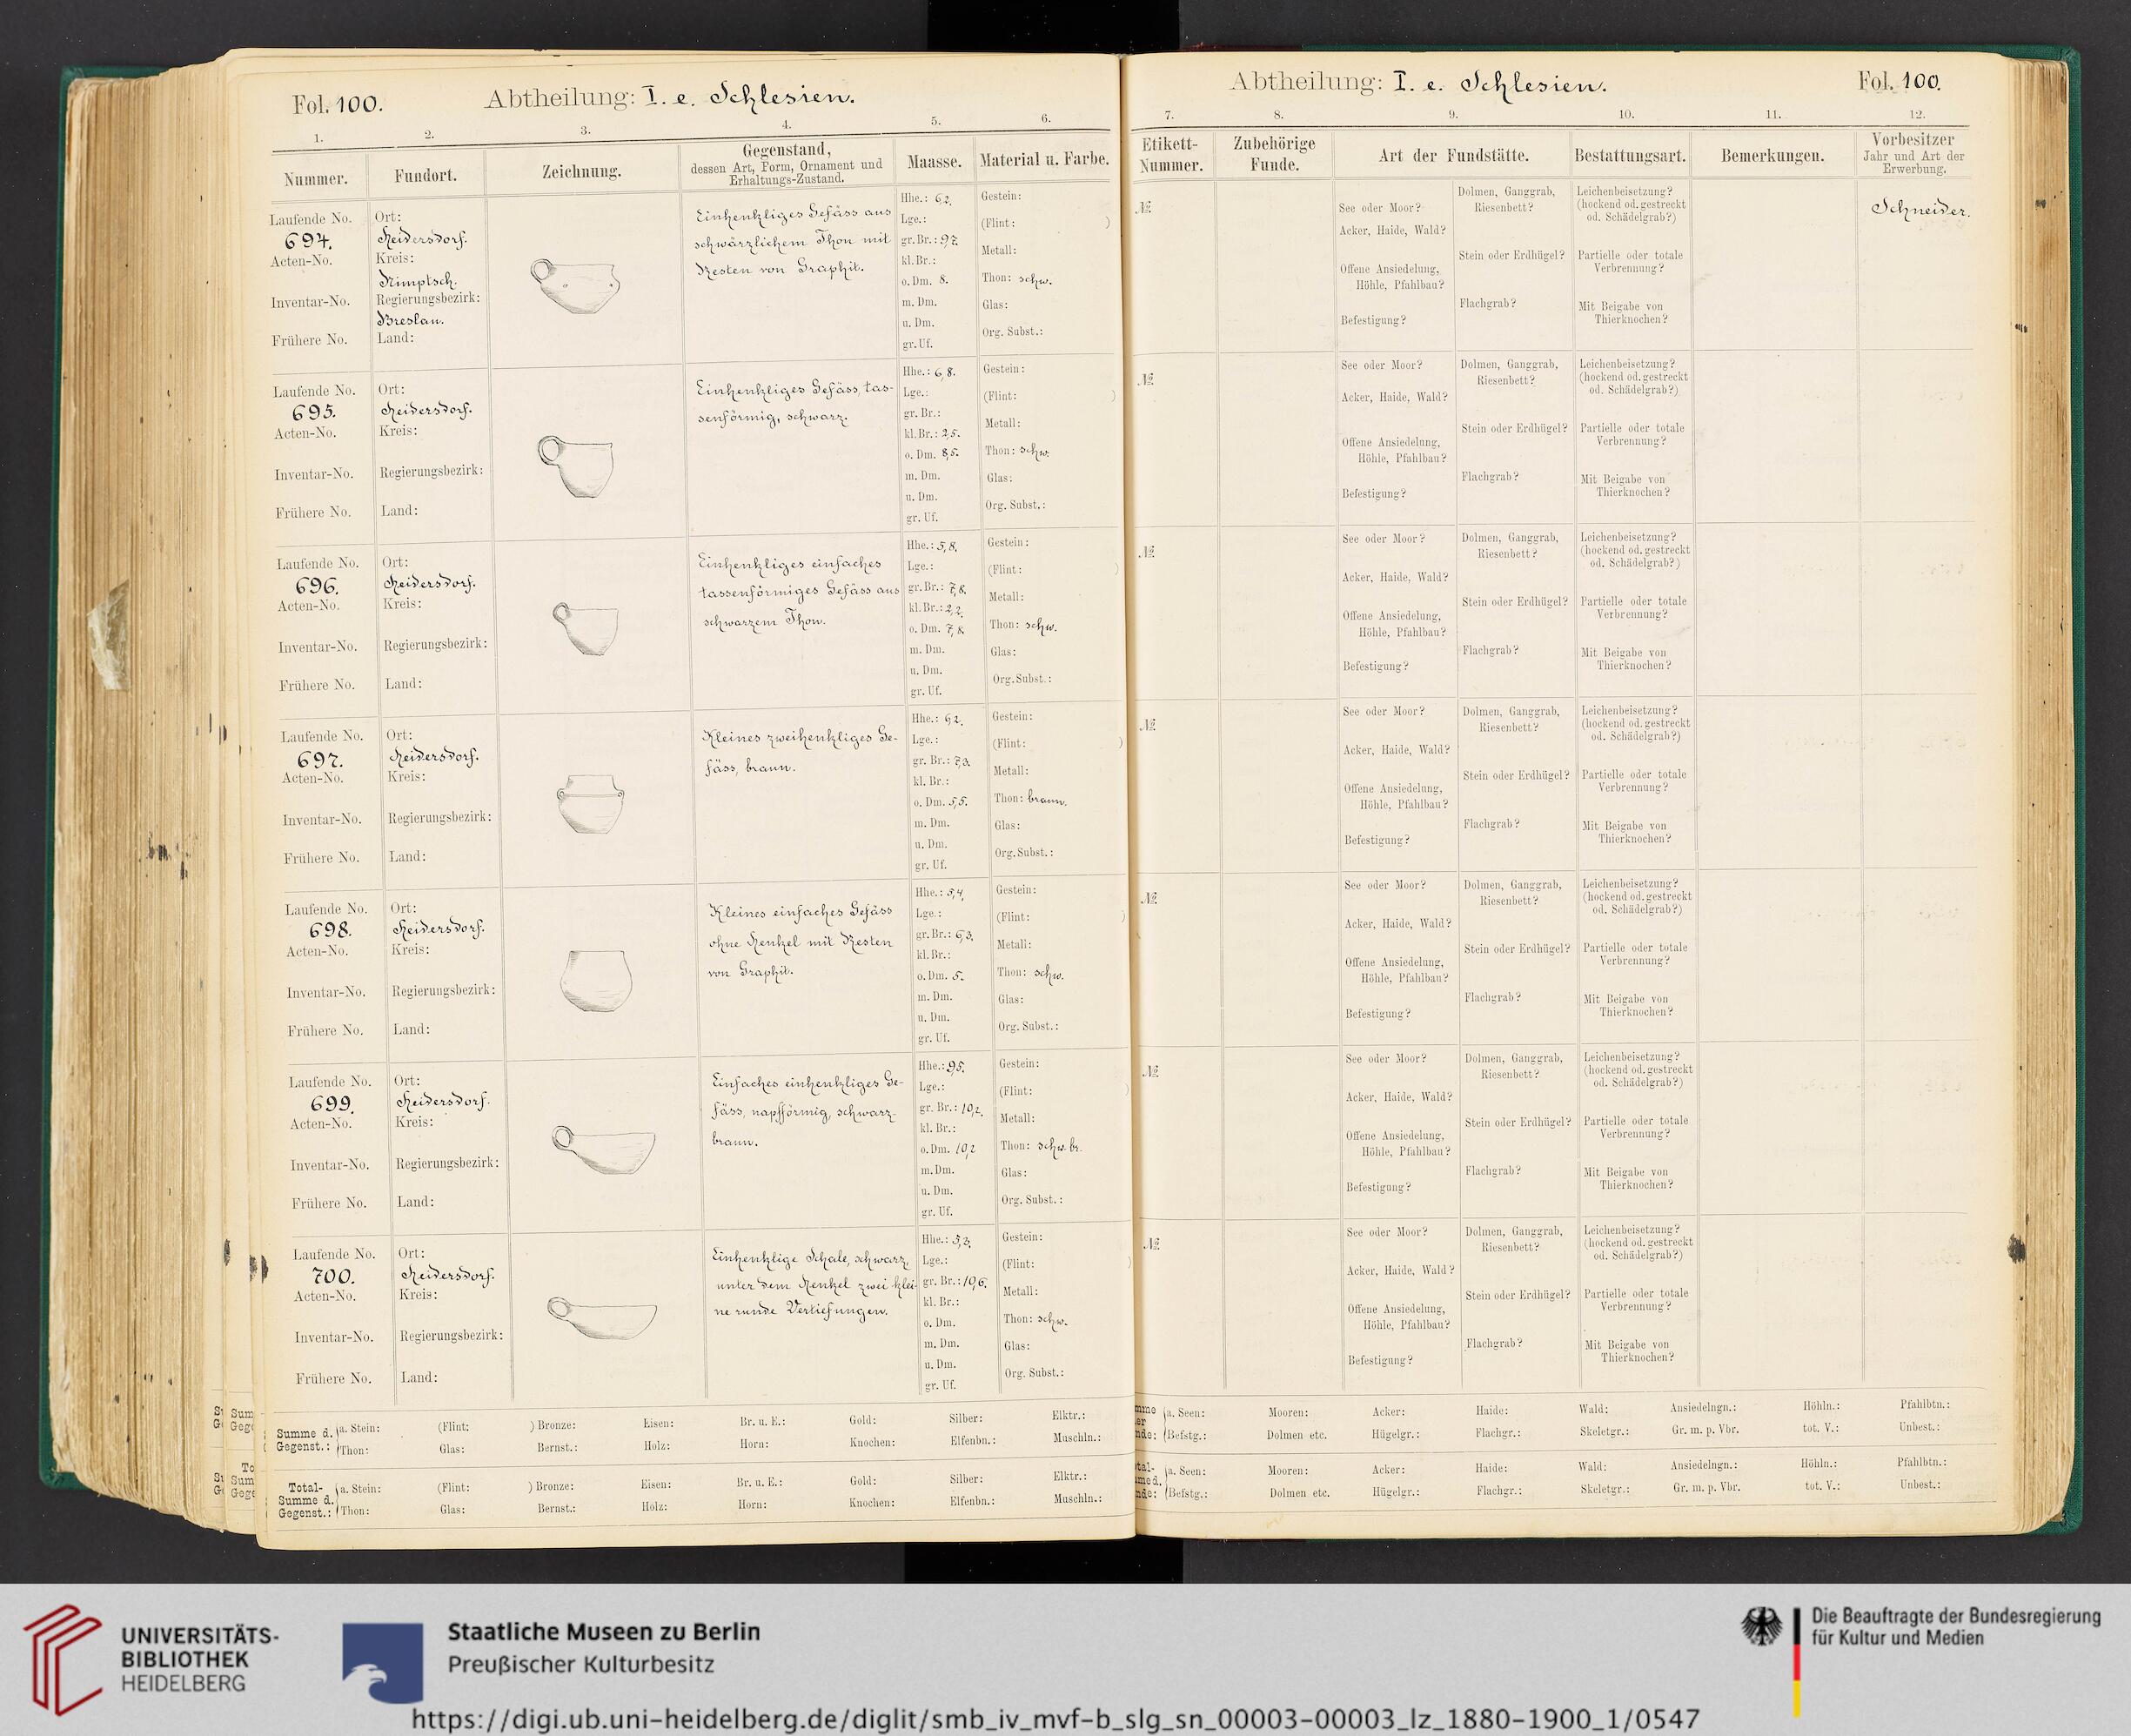 Fol. 100.
Abtheilung: I. e. Schlesien.
1. 2. 3. 4. 5. 6.
Nummer. Fundort. Zeichnung. Gegenstand, dessen Art, Form, Ornament und Erhaltungs-Zustand. Maasse. Material u. Farbe.
Laufende No. 694.
Acten-No.
Inventar-No.
Frühere No.
Ort: Heidersdorf.
Kreis: Nimptsch.
Regierungsbezirk: Breslau.
Land:
Einhenkliges Gefäss aus
schwärzlichem Thon mit
Resten von Graphit.
Hhe.: 6,2.
Lge.:
gr. Br.: 9,7.
kl. Br.:
o. Dm. 8.
m. Dm.
u. Dm.
gr. Uf.
Gestein:
(Flint: )
Metall:
Thon: schw.
Glas:
Org. Subst.:
Laufende No. 695.
Acten-No.
Inventar-No.
Frühere No.
Ort: Heidersdorf.
Kreis:
Regierungsbezirk:
Land:
Einhenkliges Gefäss, tas-
senförmig, schwarz.
Hhe.: 6,8.
Lge.:
gr. Br.:
kl. Br.: 2,5.
o. Dm. 8,5.
m. Dm.
u. Dm.
gr. Uf.
Gestein:
(Flint: )
Metall:
Thon: schw.
Glas:
Org. Subst.:
Laufende No. 696.
Acten-No.
Inventar-No.
Frühere No.
Ort: Heidersdorf.
Kreis:
Regierungsbezirk:
Land:
Einhenkliges einfaches
tassenförmiges Gefäss aus
schwarzem Thon.
Hhe.: 5,8.
Lge.:
gr. Br.: 7,8.
kl. Br.: 2,2.
o. Dm. 7,8.
m. Dm.
u. Dm.
gr. Uf.
Gestein:
(Flint: )
Metall:
Thon: schw.
Glas:
Org. Subst.:
Laufende No. 697.
Acten-No.
Inventar-No.
Frühere No.
Ort: Heidersdorf.
Kreis:
Regierungsbezirk:
Land:
Kleines zweihenkliges Ge-
fäss, braun.
Hhe.: 6,2.
Lge.:
gr. Br.: 7,3.
kl. Br.:
o. Dm. 5,5.
m. Dm.
u. Dm.
gr. Uf.
Gestein:
(Flint: )
Metall:
Thon: braun.
Glas:
Org. Subst.:
Laufende No. 698.
Acten-No.
Inventar-No.
Frühere No.
Ort: Heidersdorf.
Kreis:
Regierungsbezirk:
Land:
Kleines einfaches Gefäss
ohne Henkel mit Resten
von Graphit.
Hhe.: 5,4.
Lge.:
gr. Br.: 6,3.
kl. Br.:
o. Dm. 5.
m. Dm.
u. Dm.
gr. Uf.
Gestein:
(Flint: )
Metall:
Thon: schw.
Glas:
Org. Subst.:
Laufende No. 699.
Acten-No.
Inventar-No.
Frühere No.
Ort: Heidersdorf.
Kreis:
Regierungsbezirk:
Land:
Einfaches einhenkliges Ge-
fäss, napfförmig, schwarz-
braun.
Hhe.: 9,5.
Lge.:
gr. Br.: 10,2.
kl. Br.:
o. Dm. 10,2
m. Dm.
u. Dm.
gr. Uf.
Gestein:
(Flint: )
Metall:
Thon: schw. br.
Glas:
Org. Subst.:
Laufende No. 700.
Acten-No.
Inventar-No.
Frühere No.
Ort: Heidersdorf.
Kreis:
Regierungsbezirk:
Land:
Einhenklige Schale, schwarz,
unter dem Henkel zwei klei-
ne runde Vertiefungen.
Hhe.: 5,3.
Lge.:
gr. Br.: 10,6.
kl. Br.:
o. Dm.
m. Dm.
u. Dm.
gr. Uf.
Gestein:
(Flint: )
Metall:
Thon: schw.
Glas:
Org. Subst.:
Summe d. Gegenst.: a. Stein: (Flint: ) Bronze: Eisen: Br. u. E.: Gold: Silber: Elktr.:
Thon: Glas: Bernst.: Holz: Horn: Knochen: Elfenbn.: Muschln.:
Total-Summe d. Gegenst.: a. Stein: (Flint: ) Bronze: Eisen: Br. u. E.: Gold: Silber: Elktr.:
Thon: Glas: Bernst.: Holz: Horn: Knochen: Elfenbn.: Muschln.:
Abtheilung: I. e. Schlesien.
Fol. 100.
7. 8. 9. 10. 11. 12.
Etikett-Nummer. Zubehörige Funde. Art der Fundstätte. Bestattungsart. Bemerkungen. Vorbesitzer Jahr und Art der Erwerbung.
№
See oder Moor?
Acker, Haide, Wald?
Offene Ansiedelung, Höhle, Pfahlbau?
Befestigung?
Dolmen, Ganggrab, Riesenbett?
Stein oder Erdhügel?
Flachgrab?
Leichenbeisetzung? (hockend od. gestreckt od. Schädelgrab?)
Partielle oder totale Verbrennung?
Mit Beigabe von Thierknochen?
Schneider.
№
See oder Moor?
Acker, Haide, Wald?
Offene Ansiedelung, Höhle, Pfahlbau?
Befestigung?
Dolmen, Ganggrab, Riesenbett?
Stein oder Erdhügel?
Flachgrab?
Leichenbeisetzung? (hockend od. gestreckt od. Schädelgrab?)
Partielle oder totale Verbrennung?
Mit Beigabe von Thierknochen?
№
See oder Moor?
Acker, Haide, Wald?
Offene Ansiedelung, Höhle, Pfahlbau?
Befestigung?
Dolmen, Ganggrab, Riesenbett?
Stein oder Erdhügel?
Flachgrab?
Leichenbeisetzung? (hockend od. gestreckt od. Schädelgrab?)
Partielle oder totale Verbrennung?
Mit Beigabe von Thierknochen?
№
See oder Moor?
Acker, Haide, Wald?
Offene Ansiedelung, Höhle, Pfahlbau?
Befestigung?
Dolmen, Ganggrab, Riesenbett?
Stein oder Erdhügel?
Flachgrab?
Leichenbeisetzung? (hockend od. gestreckt od. Schädelgrab?)
Partielle oder totale Verbrennung?
Mit Beigabe von Thierknochen?
№
See oder Moor?
Acker, Haide, Wald?
Offene Ansiedelung, Höhle, Pfahlbau?
Befestigung?
Dolmen, Ganggrab, Riesenbett?
Stein oder Erdhügel?
Flachgrab?
Leichenbeisetzung? (hockend od. gestreckt od. Schädelgrab?)
Partielle oder totale Verbrennung?
Mit Beigabe von Thierknochen?
№
See oder Moor?
Acker, Haide, Wald?
Offene Ansiedelung, Höhle, Pfahlbau?
Befestigung?
Dolmen, Ganggrab, Riesenbett?
Stein oder Erdhügel?
Flachgrab?
Leichenbeisetzung? (hockend od. gestreckt od. Schädelgrab?)
Partielle oder totale Verbrennung?
Mit Beigabe von Thierknochen?
№
See oder Moor?
Acker, Haide, Wald?
Offene Ansiedelung, Höhle, Pfahlbau?
Befestigung?
Dolmen, Ganggrab, Riesenbett?
Stein oder Erdhügel?
Flachgrab?
Leichenbeisetzung? (hockend od. gestreckt od. Schädelgrab?)
Partielle oder totale Verbrennung?
Mit Beigabe von Thierknochen?
a. Seen: Mooren: Acker: Haide: Wald: Ansiedelngn.: Höhln.: Pfahlbtn.:
Befstg.: Dolmen etc. Hügelgr.: Flachgr.: Skeletgr.: Gr. m. p. Vbr. tot. V.: Unbest.:
a. Seen: Mooren: Acker: Haide: Wald: Ansiedelngn.: Höhln.: Pfahlbtn.:
Befstg.: Dolmen etc. Hügelgr.: Flachgr.: Skeletgr.: Gr. m. p. Vbr. tot. V.: Unbest.:
UNIVERSITÄTS-
BIBLIOTHEK
HEIDELBERG
Staatliche Museen zu Berlin
Preußischer Kulturbesitz
Die Beauftragte der Bundesregierung
für Kultur und Medien
https://digi.ub.uni-heidelberg.de/diglit/smb_iv_mvf-b_slg_sn_00003-00003_lz_1880-1900_1/0547